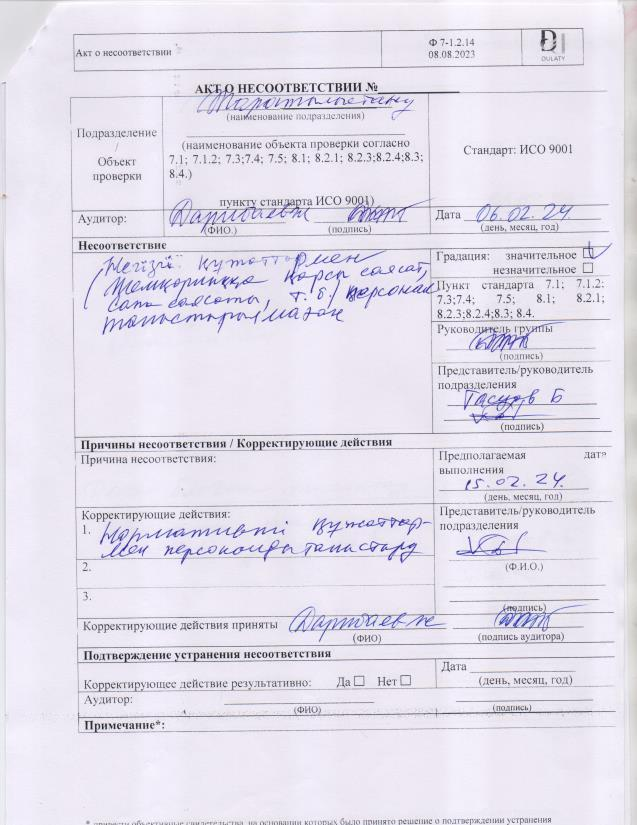 Акт о несоответствии
Ф 7-1.2.14
08.08.2023
DULATY
АКТ О НЕСООТВЕТСТВИИ №
(наименование подразделения)
Подразделение
/
Объект
проверки
(наименование объекта проверки согласно
7.1; 7.1.2; 7.3;7.4; 7.5; 8.1; 8.2.1; 8.2.3;8.2.4;8.3;
8.4.)
пункту стандарта ИСО 9001)
Стандарт: ИСО 9001
Аудитор:
(ФИО.) (подпись)
Дата 06.02.24
(день, месяц, год)
Несоответствие
Негізгі құжаттармен
(Жемқорлыққа қарсы саясат,
сапа саясаты, т.б.) персонал
таныстырылмаған
Градация: значительное
незначительное
Пункт стандарта 7.1; 7.1.2;
7.3;7.4; 7.5; 8.1; 8.2.1;
8.2.3;8.2.4;8.3; 8.4.
Руководитель группы
(подпись)
Представитель/руководитель
подразделения
(подпись)
Причины несоответствия / Корректирующие действия
Причина несоответствия:
Предполагаемая дата
выполнения
15.02.24.
(день, месяц, год)
Корректирующие действия:
1. Нормативті құжаттар-
мен персоналды
2.
3.
Представитель/руководитель
подразделения
(Ф.И.О.)
(подпись)
Корректирующие действия приняты
(ФИО) (подпись аудитора)
Подтверждение устранения несоответствия
Корректирующее действие результативно: Да Нет
Дата
(день, месяц, год)
Аудитор:
(ФИО) (подпись)
Примечание*:
объективные свидетельства, на основании которых было принято решение о подтверждении устранения